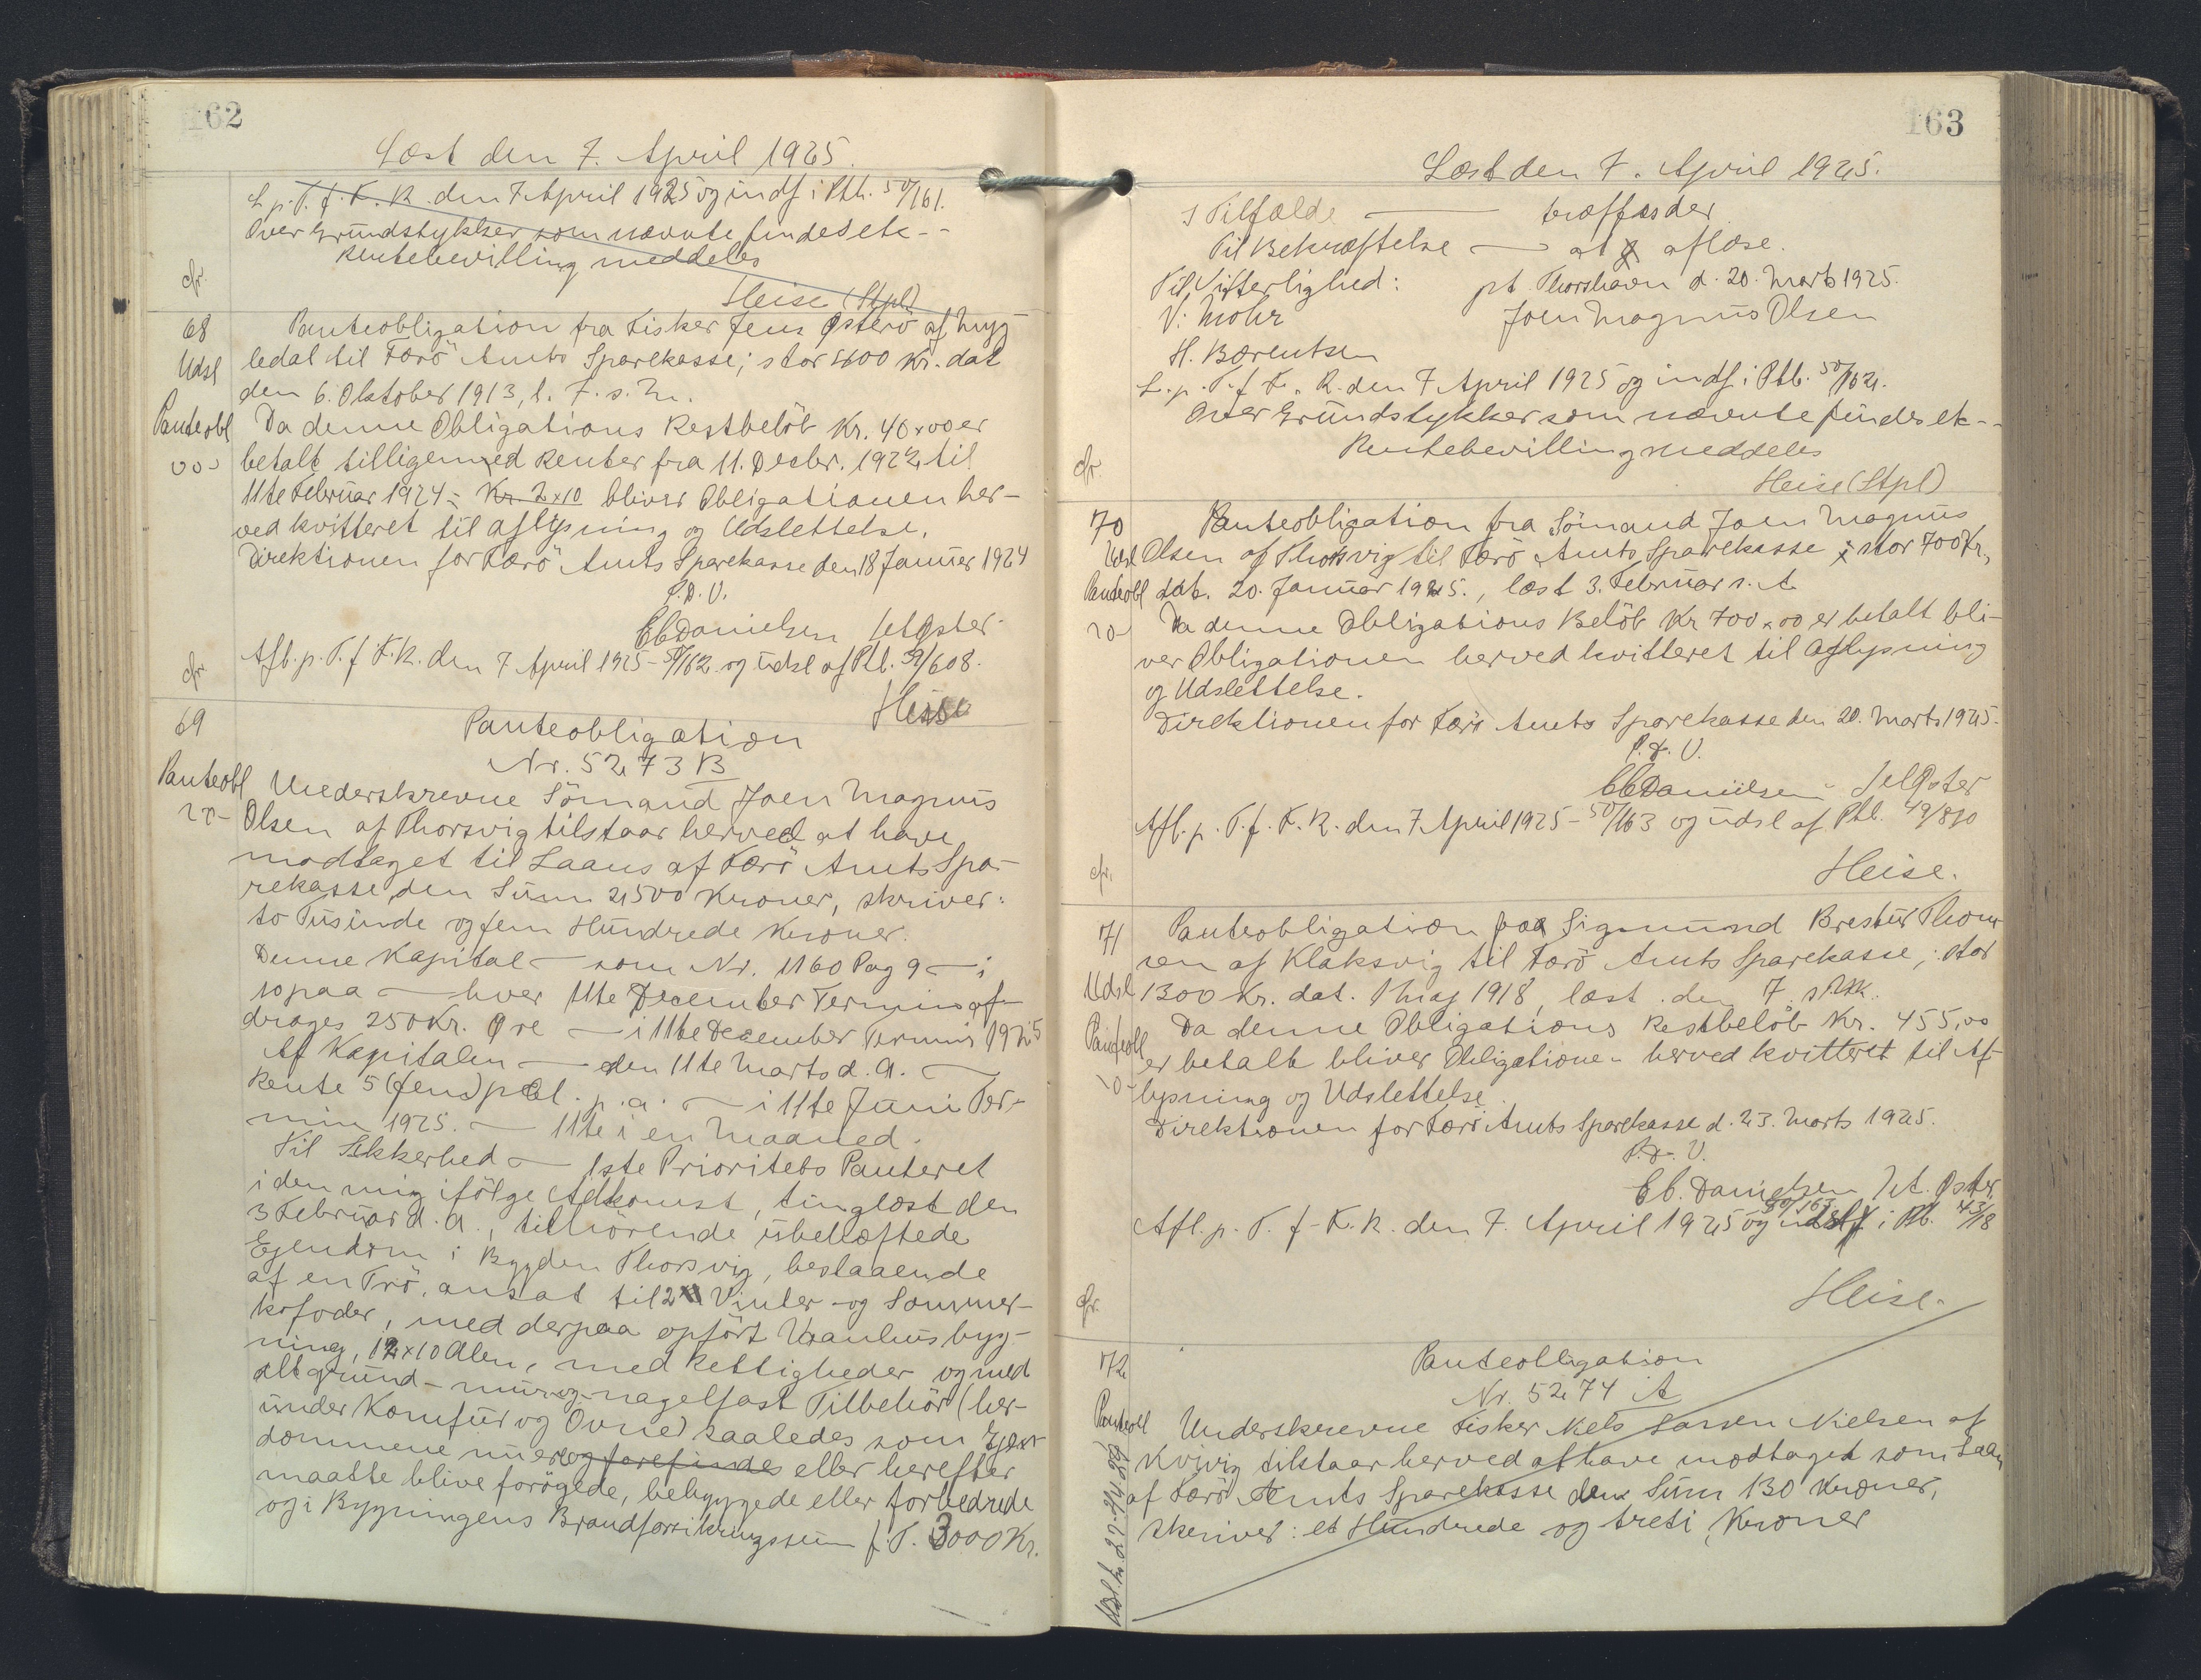 162
Læst den 7. April 1925.
L. p. T. f. F. R. den 7 April 1925 og indf i Ptb. 50/161.
Over Grundstykker som nævnte findes etc - -
Rentebevilling meddeles
cfr.
Heise (Stpl)
68
Udsl
Panteobl
Panteobligation fra Fisker Jens Østerø af Myg
ledal til Færö Amts Sparekasse; stor 400 Kr. dat
den 6. Oktober 1913, l. 7. s. M.
Da denne Obligations Restbelöb Kr. 40 x 00 er
betalt tilligemed Renter fra 11. Decbr. 1922 til
11te Februar 1924 = Kr. 2 x 10 bliver Obligationen her-
ved kvitteret til Aflysning og Udslettelse.
Direktionen for Færö Amts Sparekasse den 18 Januer 1924
P. D. V.
Eb Danielsen Jet Øster
Afl. p. T. f F. R. den 7 April 1925 - 50/162 og udsl af Ptb. 39/608.
cfr.
Heise
69
Panteobl
Panteobligation
Nr. 5273 B
Underskrevne Sömand Joen Magnus
Olsen af Thorsvig tilstaar herved at have
modtaget til Laans af Færö Amts Spa-
rekasse den Sum 2500 Kroner, skriver:
to Tusinde og fem Hundrede Kroner.
Denne Kapital — som Nr. 1160 Pag 9 — i
10 paa — hver 11te December Termin af-
drages 250 Kr. Øre — i 11te December Termin 1925
Af Kapitalen — den 11te Marts d. A. —
Rente 5 (fem) pCt. p. a. — i 11te Juni Ter-
min 1925. — 11te i en Maaned.
Til Sikkerhed — 1ste Prioritets Panteret
i den mig ifölge Adkomst, tinglæst den
3 Februar d. A., tilhörende ubehæftede
Ejendom i Bygden Thorsvig, bestaaende
af en Trö, ansat til 2 Vinter - og Sommer-
kofoder, med derpaa opfört Vaanhusbyg-
ning, 12 x 10 Alen, med Rettigheder og med
alt grund - mur og - nagelfast Tilbehör (her-
under Komfur og Ovne) saaledes som Ejen-
dommene nu er og forefindes eller herefter
maatte blive forögede, bebyggede eller forbedrede
og i Bygningens Brandforsikringssum f. T. 3000 Kr.
163
Læst den 7. April 1925.
I Tilfælde — træffes der
Til Bekræftelse — at aflæse.
Til Vitterlighed: pt. Thorshavn d. 20. Marts 1925.
V: Mohr Joen Magnus Olsen
H. Bærentsen
L. p. T. f F. R. den 7 April 1925 og indf. i Ptb. 50/162.
Over Grundstykker som nævnte findes etc - -
Rentebevilling meddeles
cfr.
Heise (Stpl)
70
Udsl
Panteobl
Panteobligation fra Sömand Joen Magnus
Olsen af Thorsvig til Færö Amts Sparekasse; stor 700 Kr,
dat. 20. Januar 1925., læst 3. Februar s. A
Da denne Obligations Belöb Kr 700 x 00 er betalt bli-
ver Obligationen herved kvitteret til Aflysning
og Udslettelse.
Direktionen for Færö Amts Sparekasse den 20. Marts 1925.
P. D. V.
Eb Danielsen Jet Øster
Afl. p. T. f. F. R. den 7 April 1925 - 50/163 og udsl af Ptb. 49/810
cfr.
Heise.
71
Udsl
Panteobl
Panteobligation fra Sigmund Brestur Thom
sen af Klaksvig til Færö Amts Sparekasse; stor
1300 Kr. dat. 1 Maj 1918, læst den 7.
Da denne Obligations Restbelöb Kr. 455,00
er betalt bliver Obligationen herved kvitteret til Af-
lysning og Udslettelse.
Direktionen for Færö Amts Sparekasse d. 23. Marts 1925.
P. D. V.
Eb. Danielsen Jet. Øster.
Afl. p. T. f. F. R. den 7. April 1925 50/163 og udsl i Ptb. 43/18
cfr.
Heise.
72
Panteobl
Panteobligation
Nr. 5274 A
Underskrevne Fisker Niels Larsen Nielsen af
Kvivig tilstaar herved at have modtaget som Laan
af Færö Amts Sparekasse den Sum 130 Kroner,
skriver: et Hundrede og treti Kroner